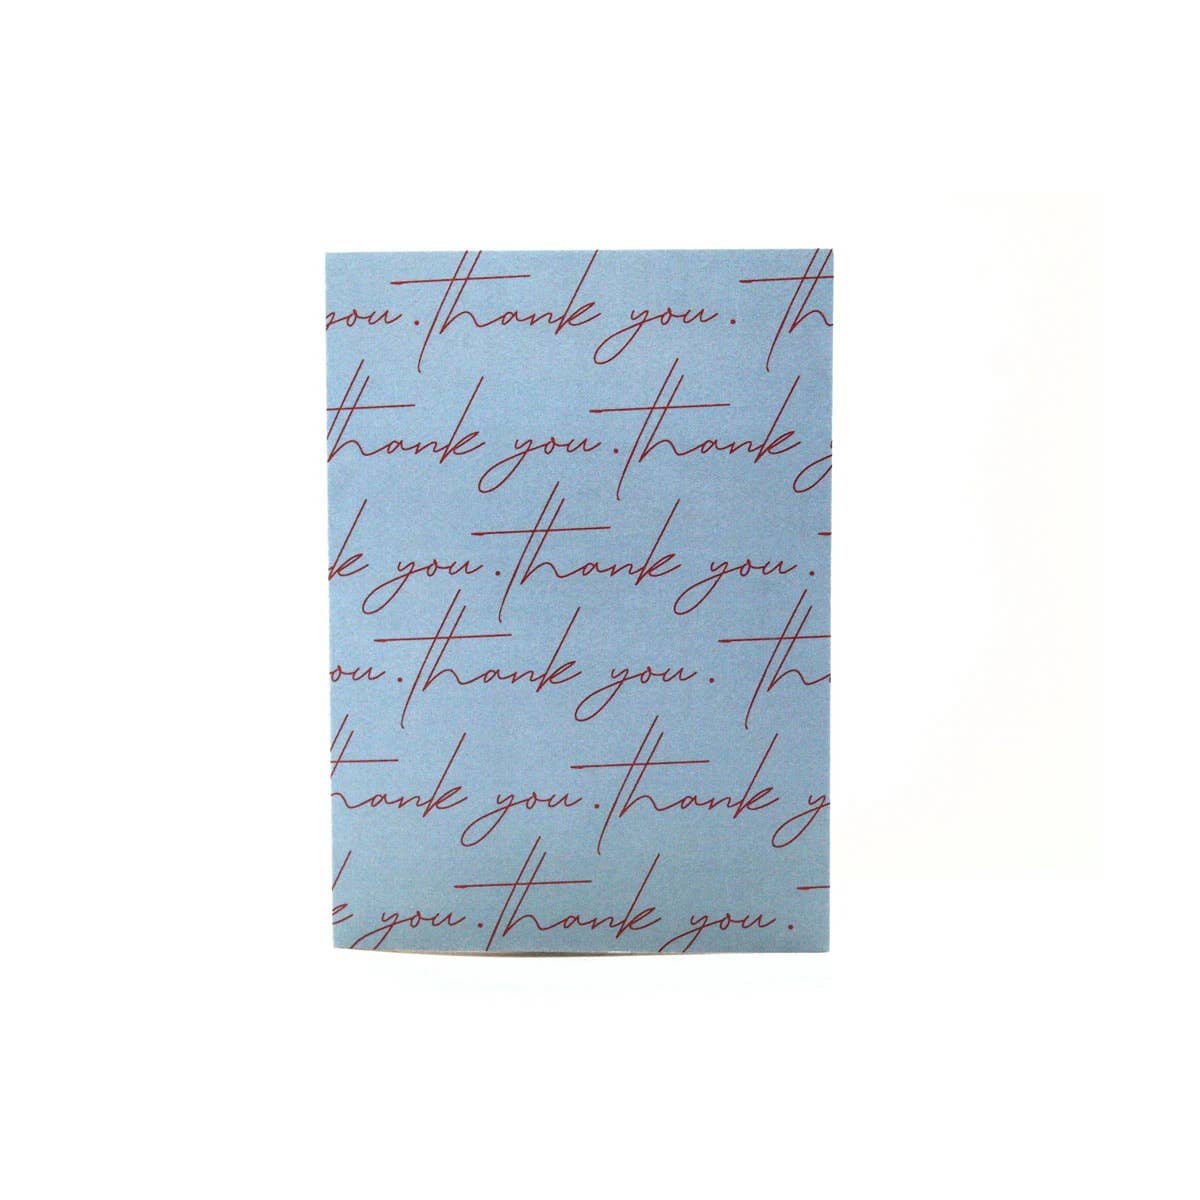 you. thank you. th
thank you. thank y
k you. thank you.
ou. thank you. th
thank you. thank y
k you. thank you.